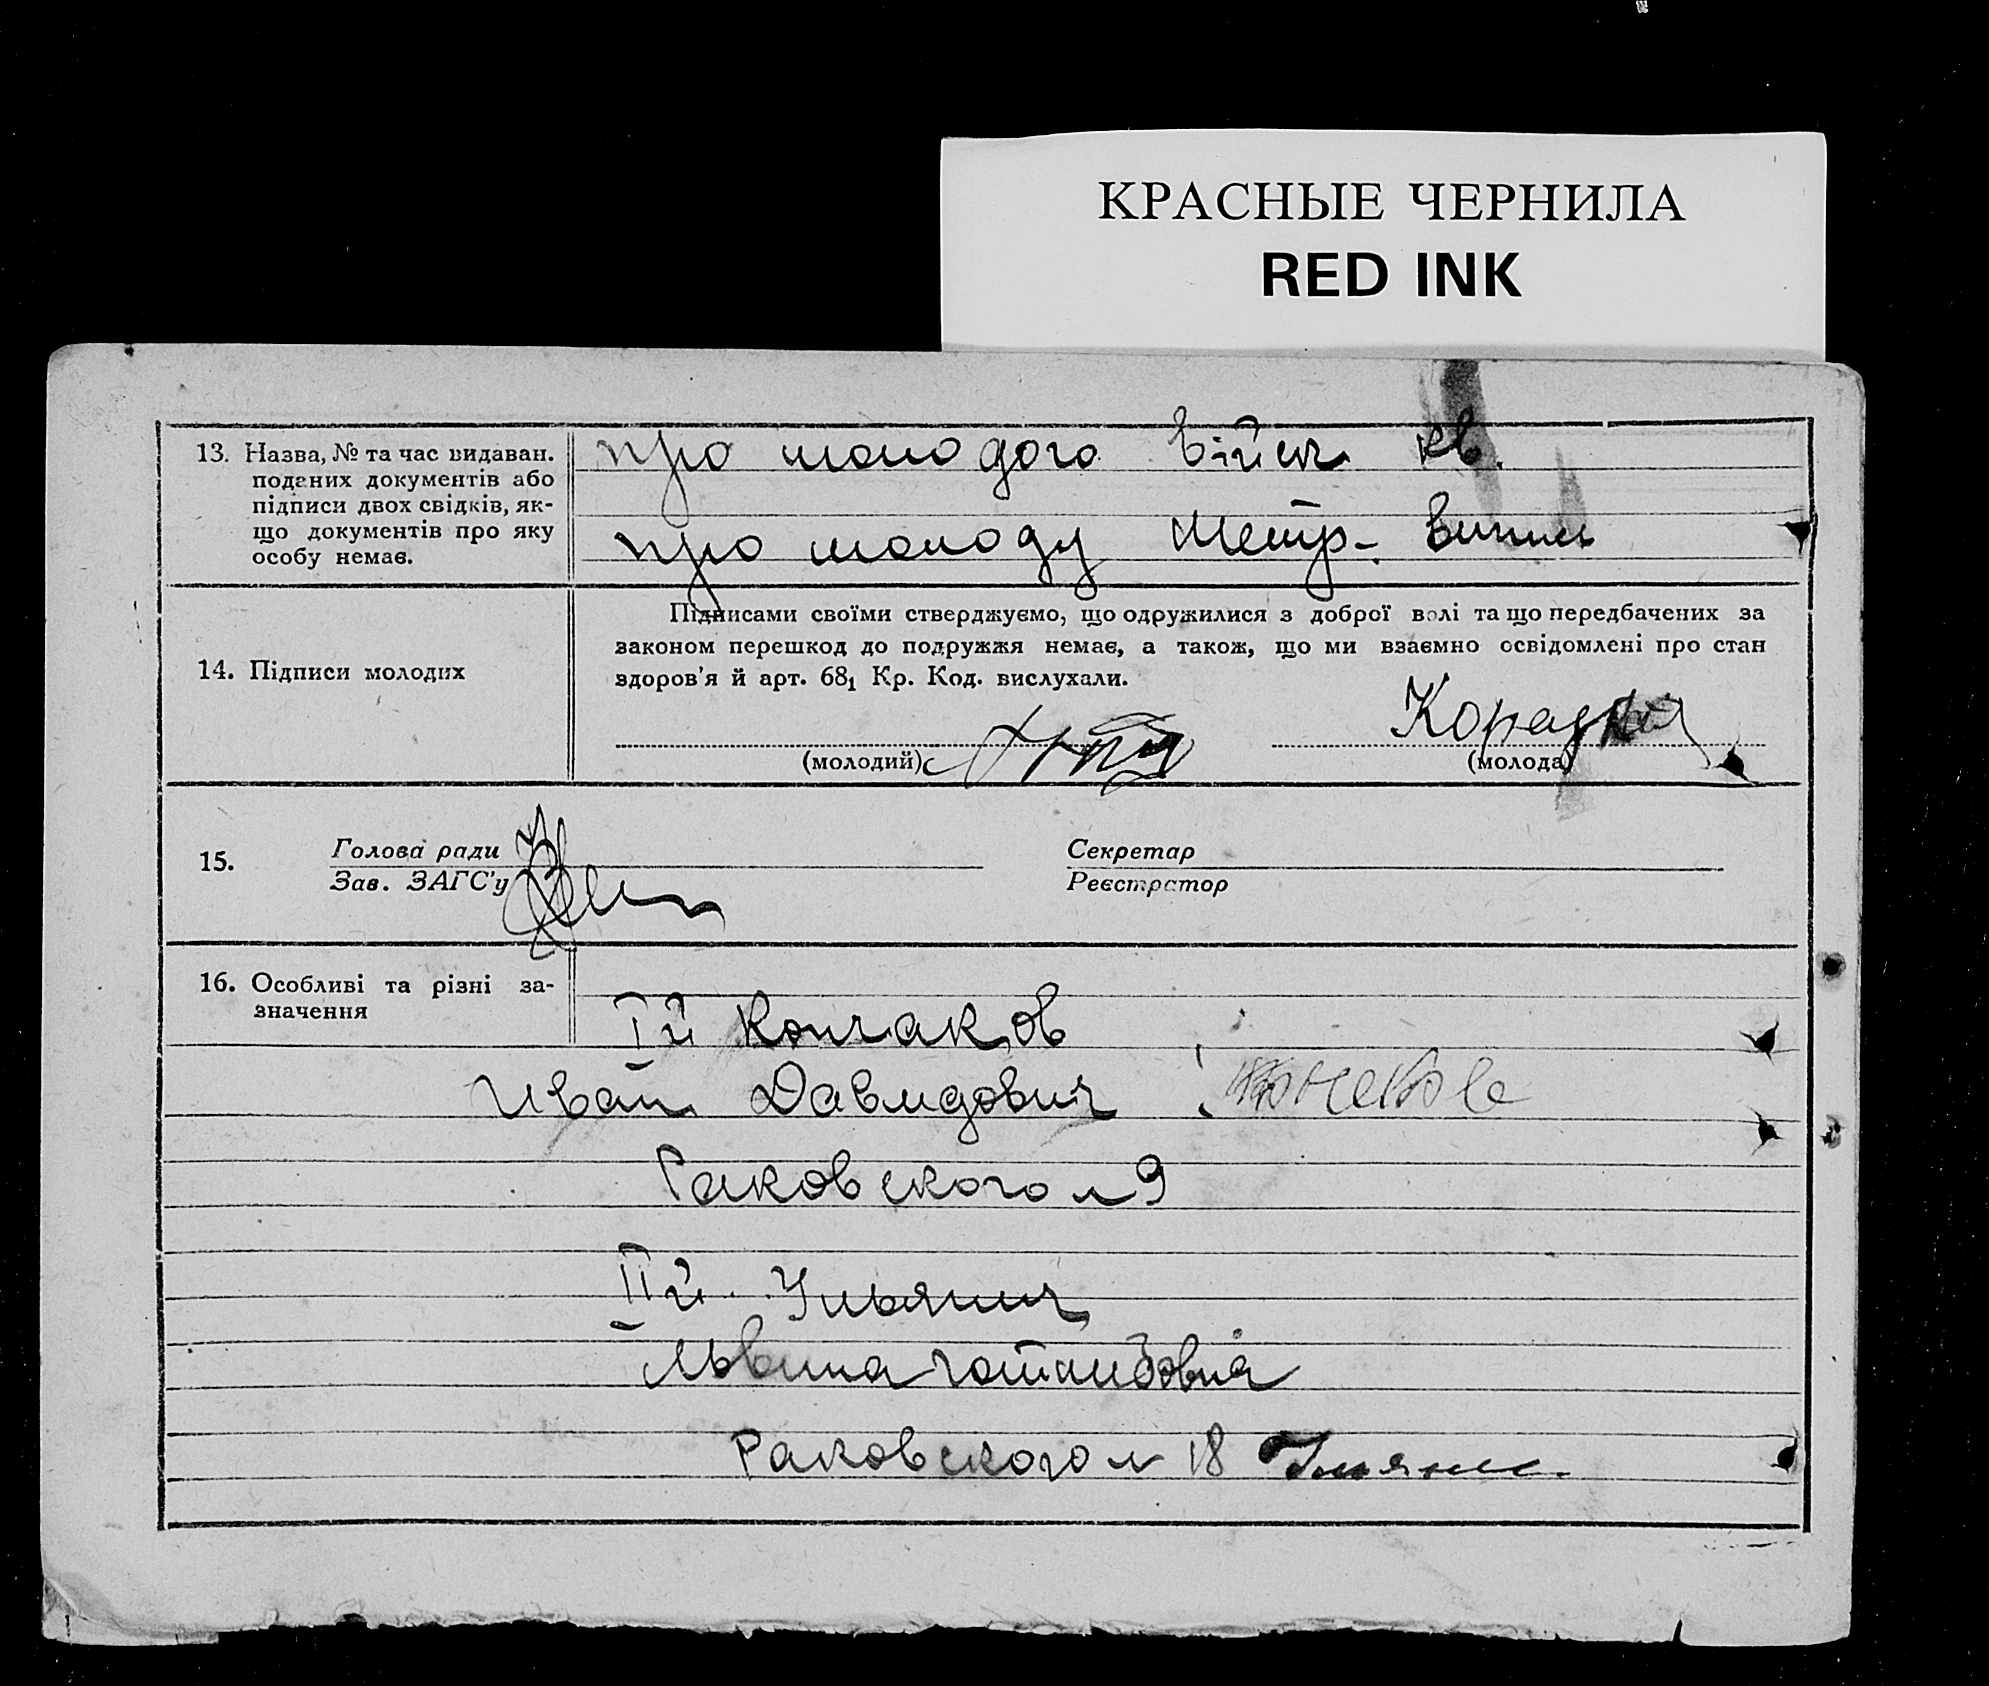 КРАСНЫЕ ЧЕРНИЛА
RED INK
13. Назва, № та час видаван.
поданих документів або
підписи двох свідків, як-
що документів про яку
особу немає.
про молодого Війск кв.
про молоду Метр. Випись
14. Підписи молодих
Підписами своїми стверджуємо, що одружилися з доброї волі та що передбачених за
законом перешкод до подружжя немає, а також, що ми взаємно освідомлені про стан
здоров'я й арт. 68₁ Кр. Код. вислухали.
(молодий)
(молода)
15. Голова ради
Зав. ЗАГС'у
Секретар
Реєстратор
16. Особливі та різні за-
значення
Iй
Иван Давидович
Раковского 9
IIй
Раковского 18